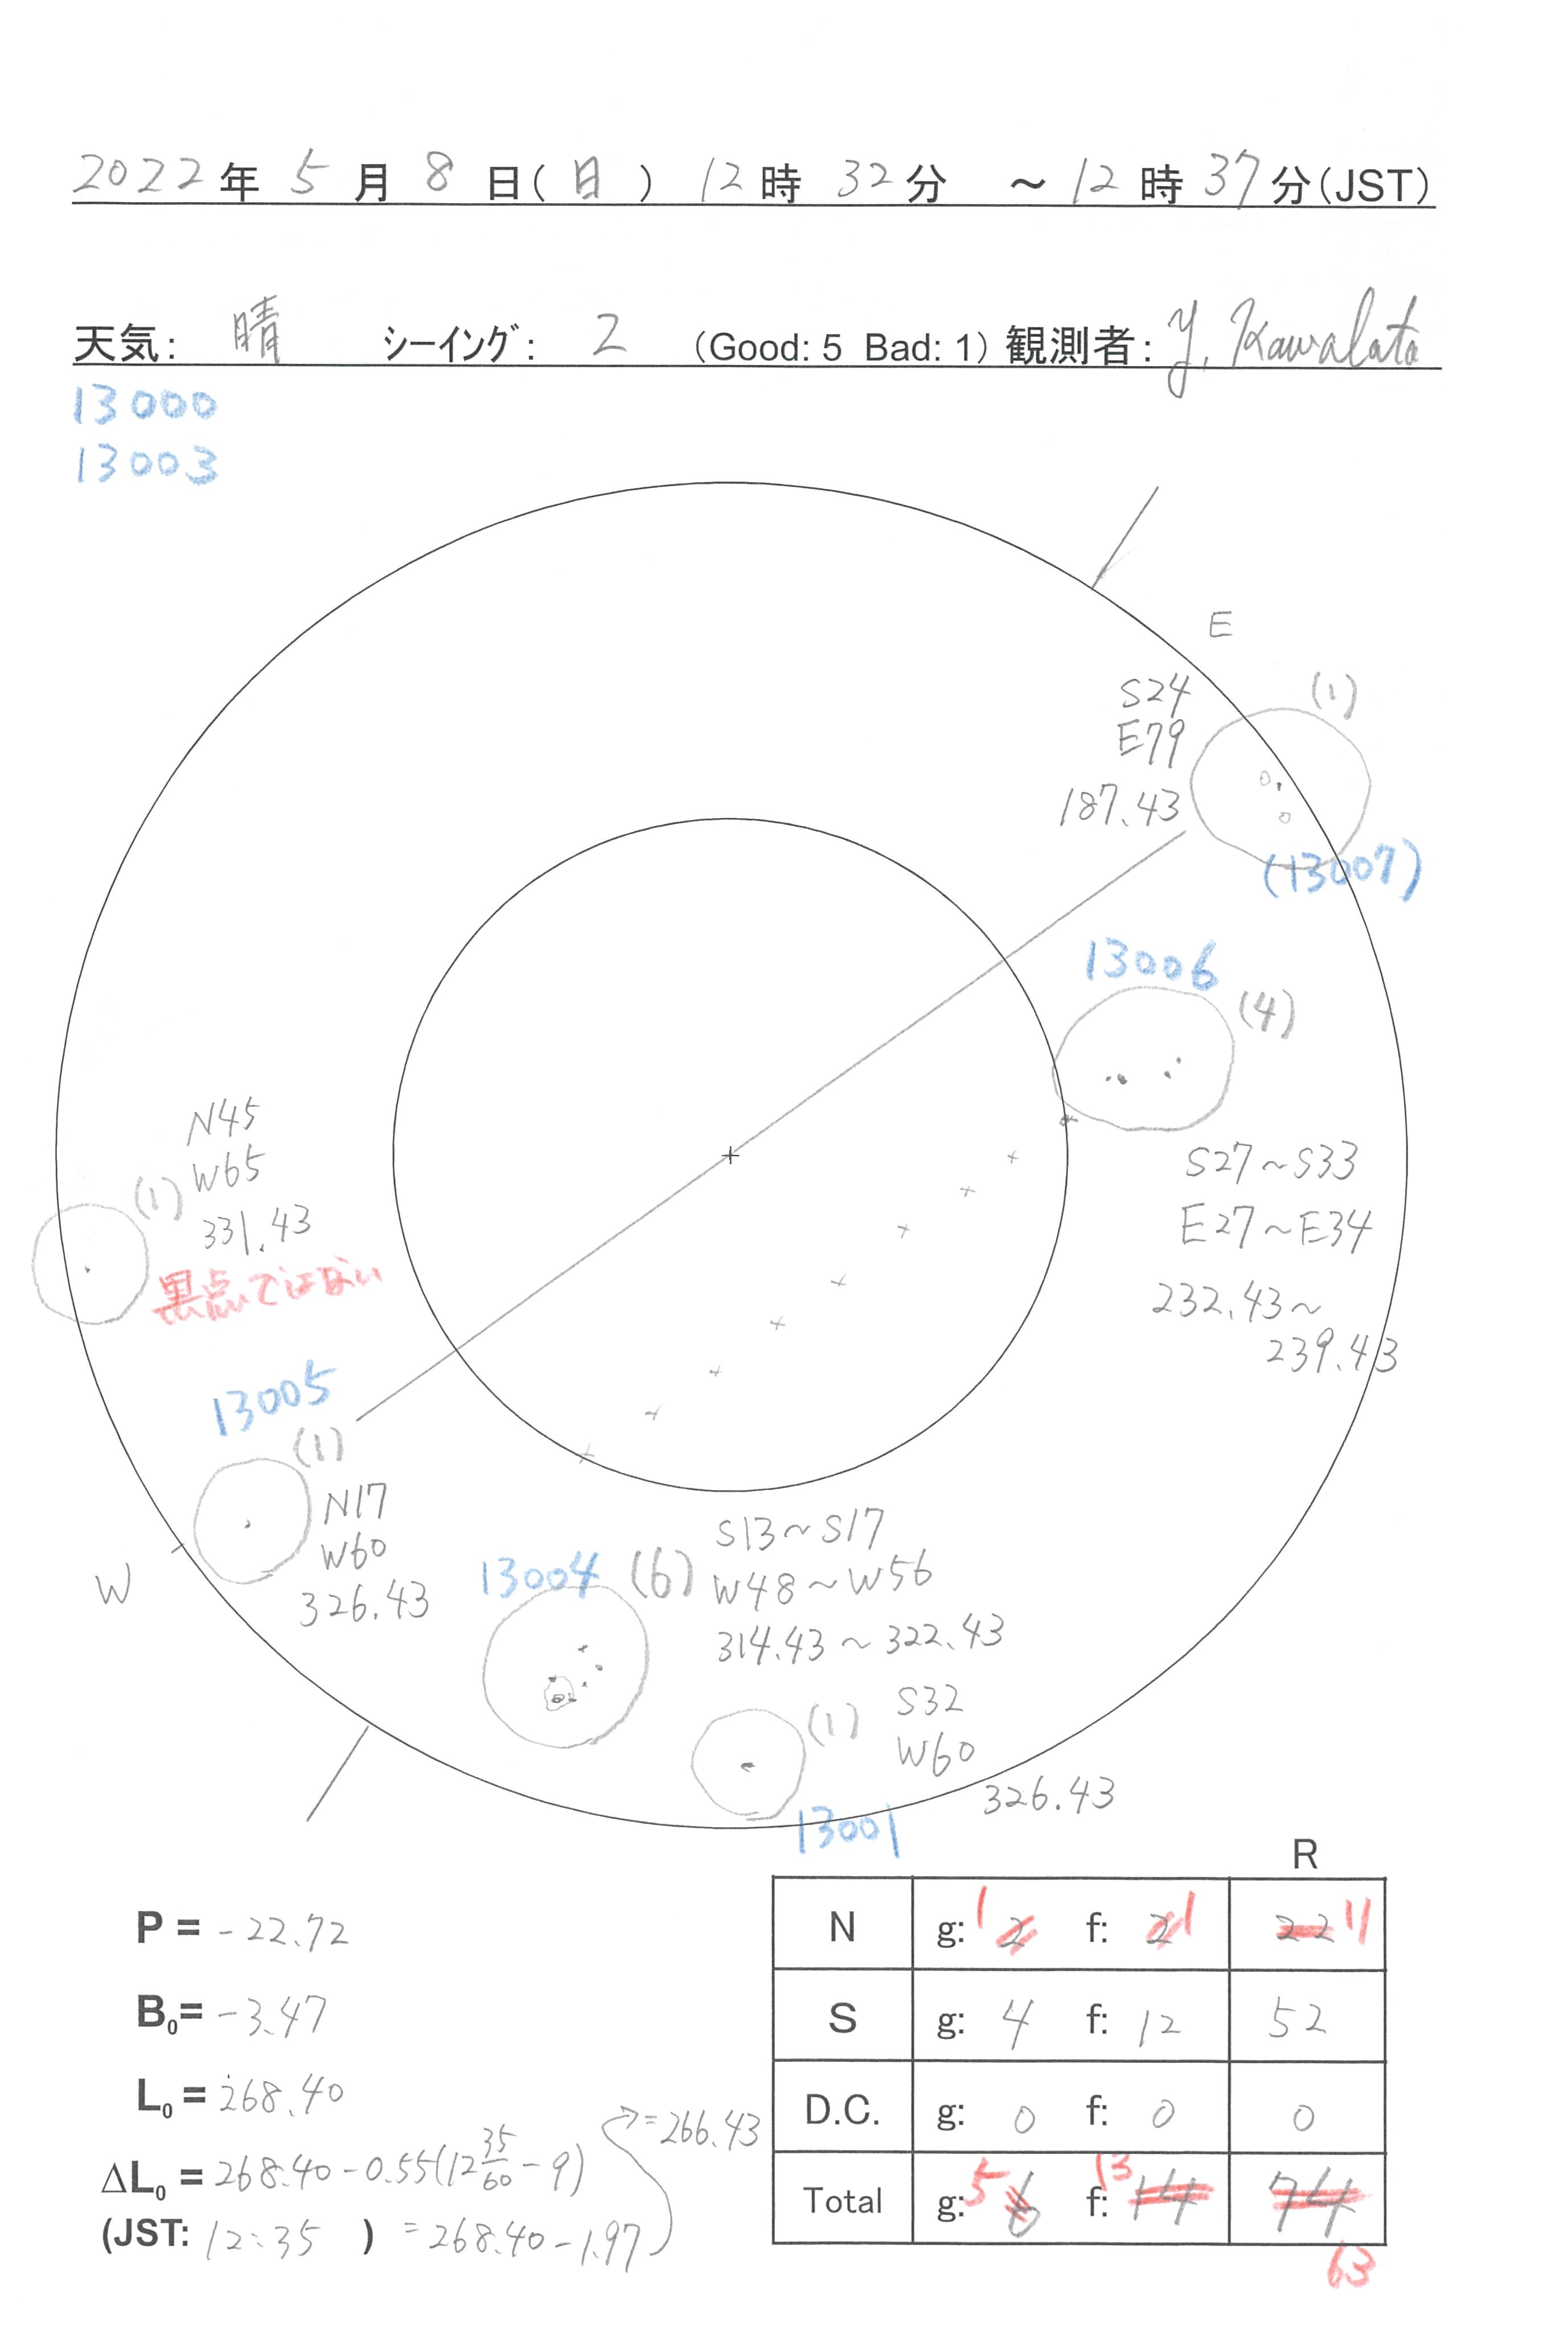 2022年 5月 8日(日) 12時 32分 ～12時 37分(JST)
天気: 晴 シーイング: 2 (Good: 5 Bad: 1) 観測者: Y. Kawabata
13000
13003
E
S24
E79
187.43
(1)
(13007)
13006
(4)
S27～S33
E27～E34
232.43～
239.43
N45
W65
331.43
(1)
黒点ではない
13005
(1)
N17
W60
326.43
W
13004
(6)
S13～S17
W48～W56
314.43～322.43
(1)
S32
W60
326.43
13001
R
N g: 1 2 f: 2 1 22 11
S g: 4 f: 12 52
D.C. g: 0 f: 0 0
Total g: 5 6 f: 13 14 74
63
P = -22.72
B0= -3.47
L0 = 268.40
ΔL0 = 268.40-0.55(12 35/60 -9)
=266.43
(JST: 12:35 ) =268.40-1.97